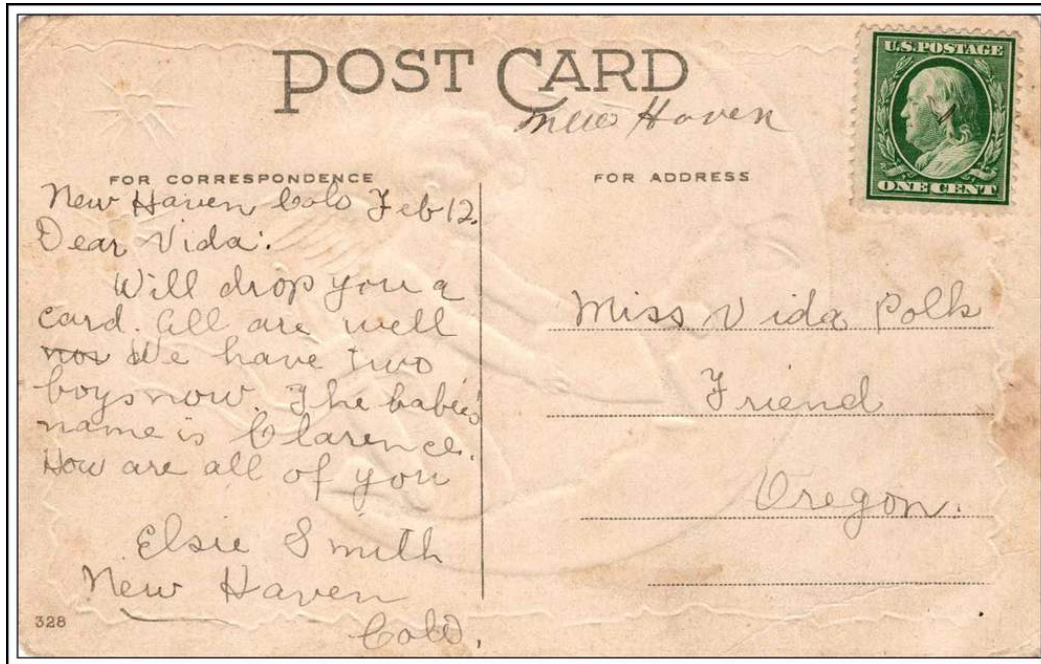 POST CARD
New Haven
U.S. POSTAGE
ONE CENT
FOR CORRESPONDENCE
FOR ADDRESS
New Haven Colo Feb 12.
Dear Vida:
Will drop you a
card. All are well
nor We have two
boys now. The babie's
name is Clarence.
How are all of you
Elsie Smith
New Haven
Colo.
Miss Vida Polk
Friend
Oregon.
328